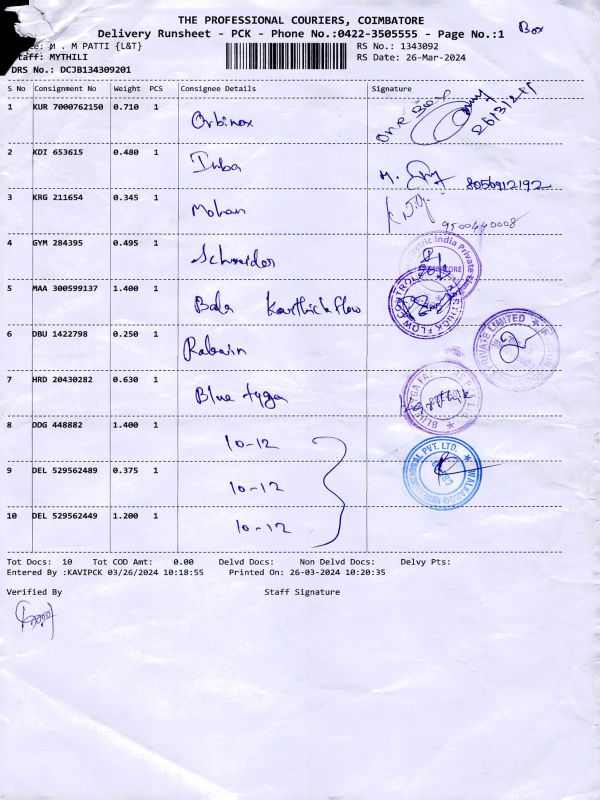 THE PROFESSIONAL COURIERS, COIMBATORE
Delivery Runsheet - PCK - Phone No.:0422-3505555 - Page No.:1 Box
M . M PATTI {L&T} RS No.: 1343092
Staff: MYTHILI RS Date: 26-Mar-2024
DRS No.: DCJB134309201
S No Consignment No Weight PCS Consignee Details Signature
1 KUR 7000762150 0.710 1 Orbinox one Box 26/3/24
2 KDI 653615 0.480 1 Inba M. 8056912192
3 KRG 211654 0.345 1 Mohan 9500440008
4 GYM 284395 0.495 1 Schneider
5 MAA 300599137 1.400 1 Bala Karthick flow
6 DBU 1422798 0.250 1
7 HRD 20430282 0.630 1 Blue
8 DDG 448882 1.400 1 10-12
9 DEL 529562489 0.375 1 10-12
10 DEL 529562449 1.200 1 10-12
Tot Docs: 10 Tot COD Amt: 0.00 Delvd Docs: Non Delvd Docs: Delvy Pts:
Entered By :KAVIPCK 03/26/2024 10:18:55 Printed On: 26-03-2024 10:20:35
Verified By Staff Signature